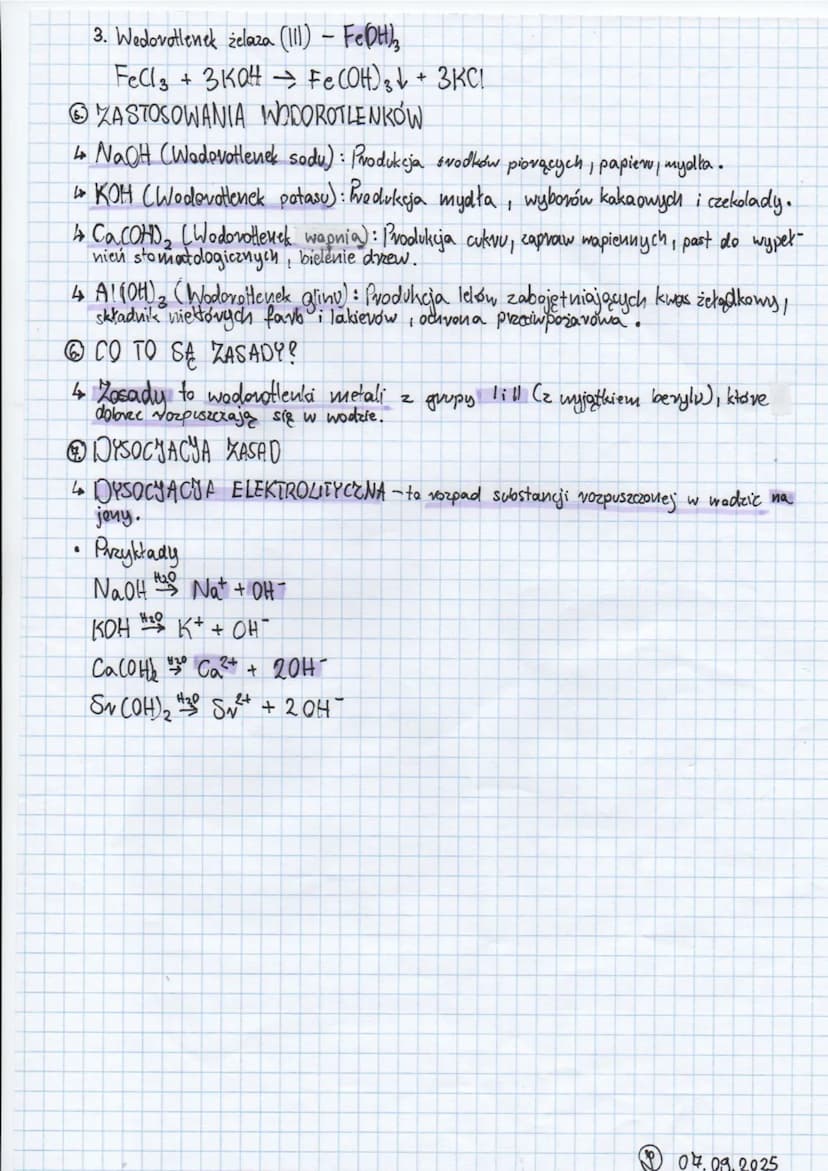 3. Wodorotlenek żelaza (III) – Fe(OH)₃
FeCl₃ + 3KOH → Fe(OH)₃↓ + 3KCl
⑤ ZASTOSOWANIA WODOROTLENKÓW
↳ NaOH (Wodorotlenek sodu): Produkcja środków piorących, papieru, mydła.
↳ KOH (Wodorotlenek potasu): Produkcja mydła, wyborów kakaowych i czekolady.
↳ Ca(OH)₂ (Wodorotlenek wapnia): Produkcja cukru, zapraw wapiennych, past do wypeł-
nień stomatologicznych, bielenie drzew.
↳ Al(OH)₃ (Wodorotlenek glinu): Produkcja leków zobojętniających kwas żołądkowy,
składnik niektórych farb i lakierów, ochrona przeciwpożarowa.
⑥ CO TO SĄ ZASADY?
↳ Zasady to wodorotlenki metali z grupy I i II (z wyjątkiem berylu), które
dobrze rozpuszczają się w wodzie.
⑦ DYSOCJACJA ZASAD
↳ DYSOCJACJA ELEKTROLITYCZNA – to rozpad substancji rozpuszczonej w wodzie na
jony.
• Przykłady
NaOH H₂O→ Na⁺ + OH⁻
KOH H₂O→ K⁺ + OH⁻
Ca(OH)₂ H₂O→ Ca²⁺ + 2OH⁻
Sr(OH)₂ H₂O→ Sr²⁺ + 2OH⁻
07.09.2025